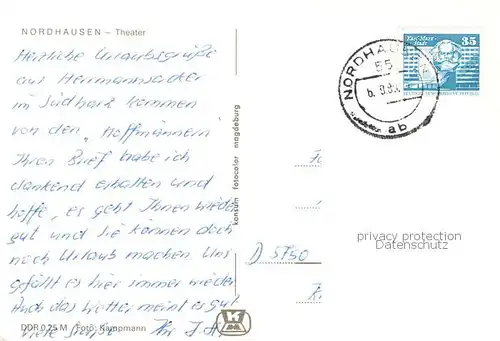 NORDHAUSEN – Theater
Herzliche Urlaubsgrüße
aus Herrmannsacker
im Südharz kommen
von den „Hoffmännern"
Ihren Brief habe ich
dankend erhalten und
hoffe, es geht Ihnen wieder
gut und Sie können doch
noch Urlaub machen. Uns
gefällt es hier immer wieder
Auch das Wetter meint es gut
Viele Grüße Ihr J. H.
DDR 0,25 M Foto: Kampmann
konsum fotocolor magdeburg
NORDHAUSEN
55
6. 8.
ab
Karl-Marx-
Stadt
35
D 5750
privacy protection
Datenschutz